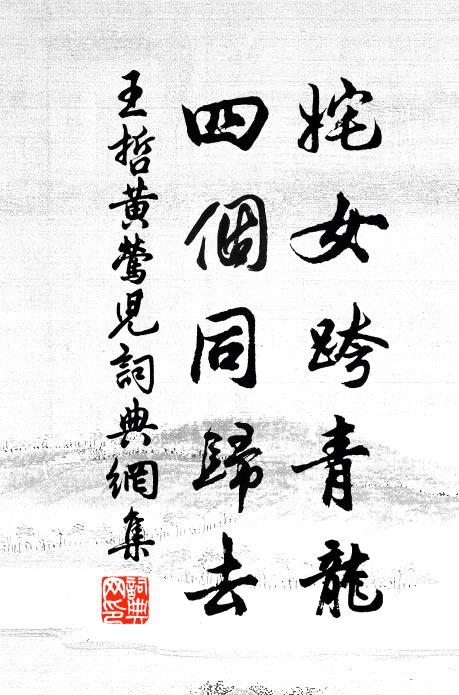 姹女跨青龍
四個同歸去
王哲黃鶯兒詞典網集
詞典網印